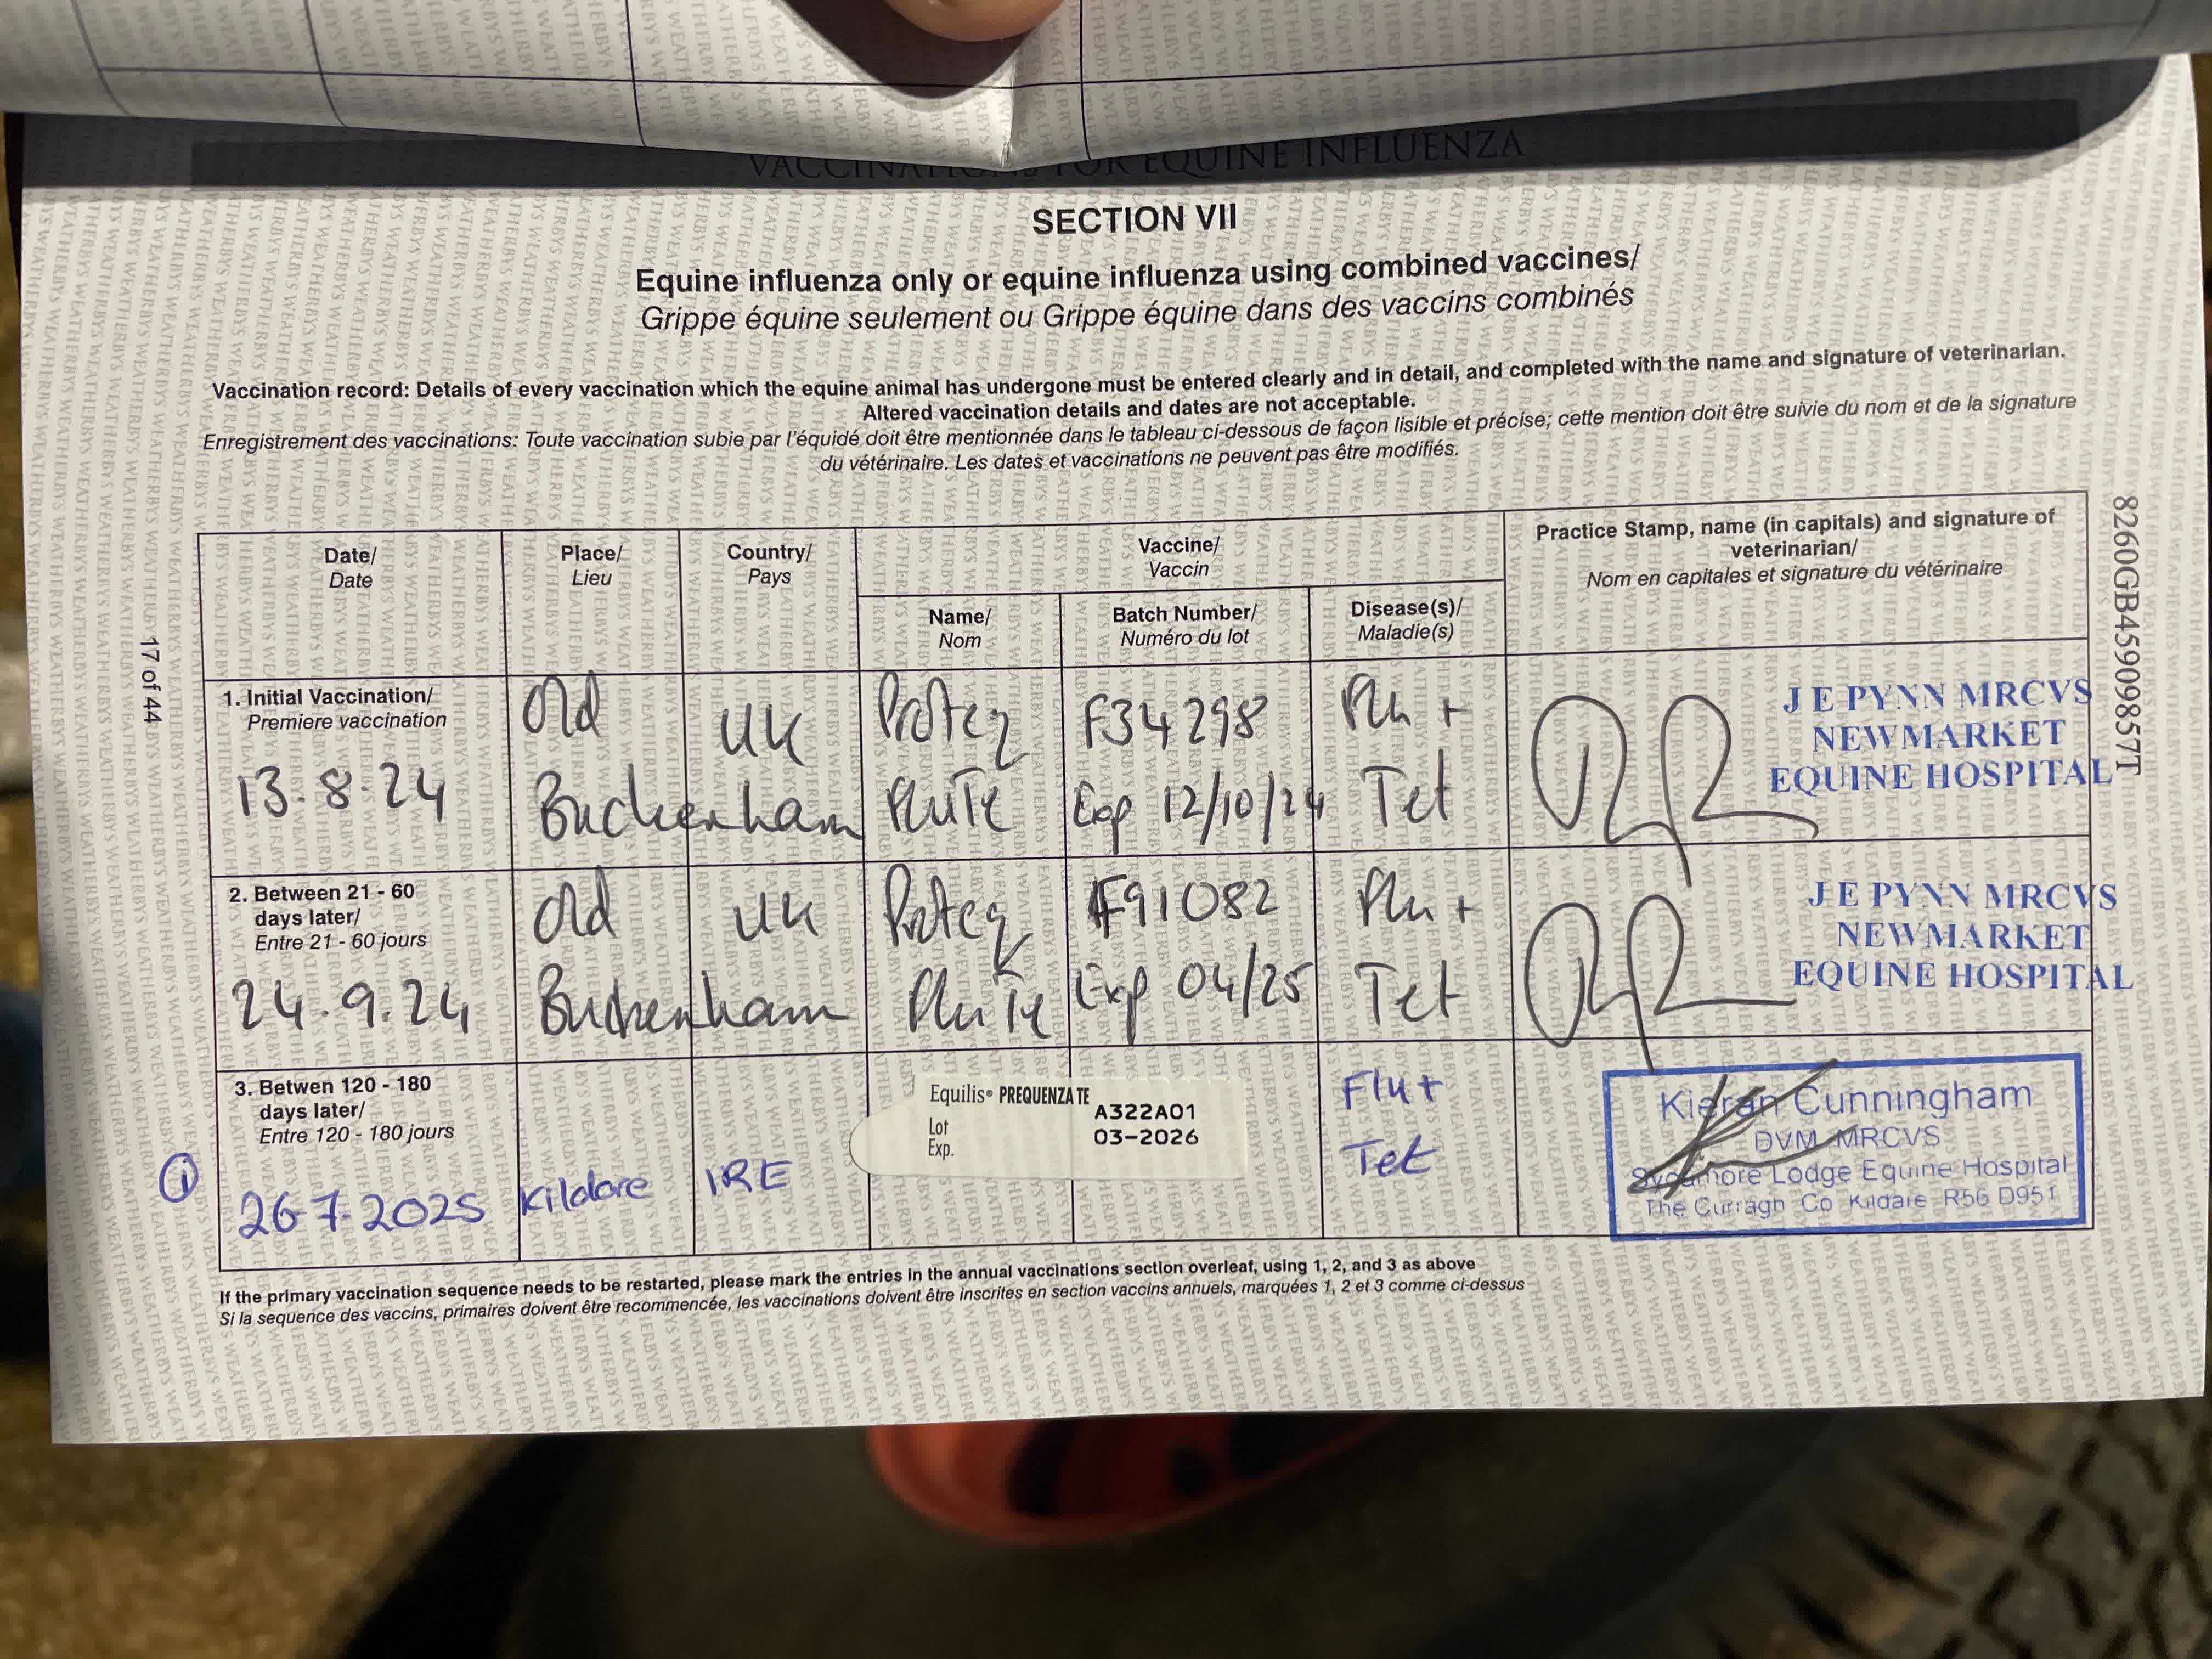 VACCINATIONS FOR EQUINE INFLUENZA
SECTION VII
Equine influenza only or equine influenza using combined vaccines/
Grippe équine seulement ou Grippe équine dans des vaccins combinés
Vaccination record: Details of every vaccination which the equine animal has undergone must be entered clearly and in detail, and completed with the name and signature of veterinarian.
Altered vaccination details and dates are not acceptable.
Enregistrement des vaccinations: Toute vaccination subie par l'équidé doit être mentionnée dans le tableau ci-dessous de façon lisible et précise; cette mention doit être suivie du nom et de la signature
du vétérinaire. Les dates et vaccinations ne peuvent pas être modifiés.
Date/
Date
Place/
Lieu
Country/
Pays
Vaccine/
Vaccin
Name/
Nom
Batch Number/
Numéro du lot
Disease(s)/
Maladie(s)
Practice Stamp, name (in capitals) and signature of
veterinarian/
Nom en capitales et signature du vétérinaire
1. Initial Vaccination/
Premiere vaccination
13.8.24
Old
Buckenham
UK
Proteq
FluTe
F34298
Exp 12/10/24
Flu +
Tet
J E PYNN MRCVS
NEWMARKET
EQUINE HOSPITAL
2. Between 21 - 60
days later/
Entre 21 - 60 jours
24.9.24
Old
Buckenham
UK
Proteq
FluTe
F91082
Exp 04/25
Flu +
Tet
J E PYNN MRCVS
NEWMARKET
EQUINE HOSPITAL
3. Betwen 120 - 180
days later/
Entre 120 - 180 jours
1
26.7.2025
Kildare
IRE
Equilis® PREQUENZA TE
Lot A322A01
Exp. 03-2026
Flu+
Tet
Kieran Cunningham
DVM MRCVS
Sycamore Lodge Equine Hospital
The Curragh Co Kildare R56 D951
If the primary vaccination sequence needs to be restarted, please mark the entries in the annual vaccinations section overleaf, using 1, 2, and 3 as above
Si la sequence des vaccins, primaires doivent être recommencée, les vaccinations doivent être inscrites en section vaccins annuels, marquées 1, 2 et 3 comme ci-dessus
17 of 44
8260GB45909857T
WEATHERBYS